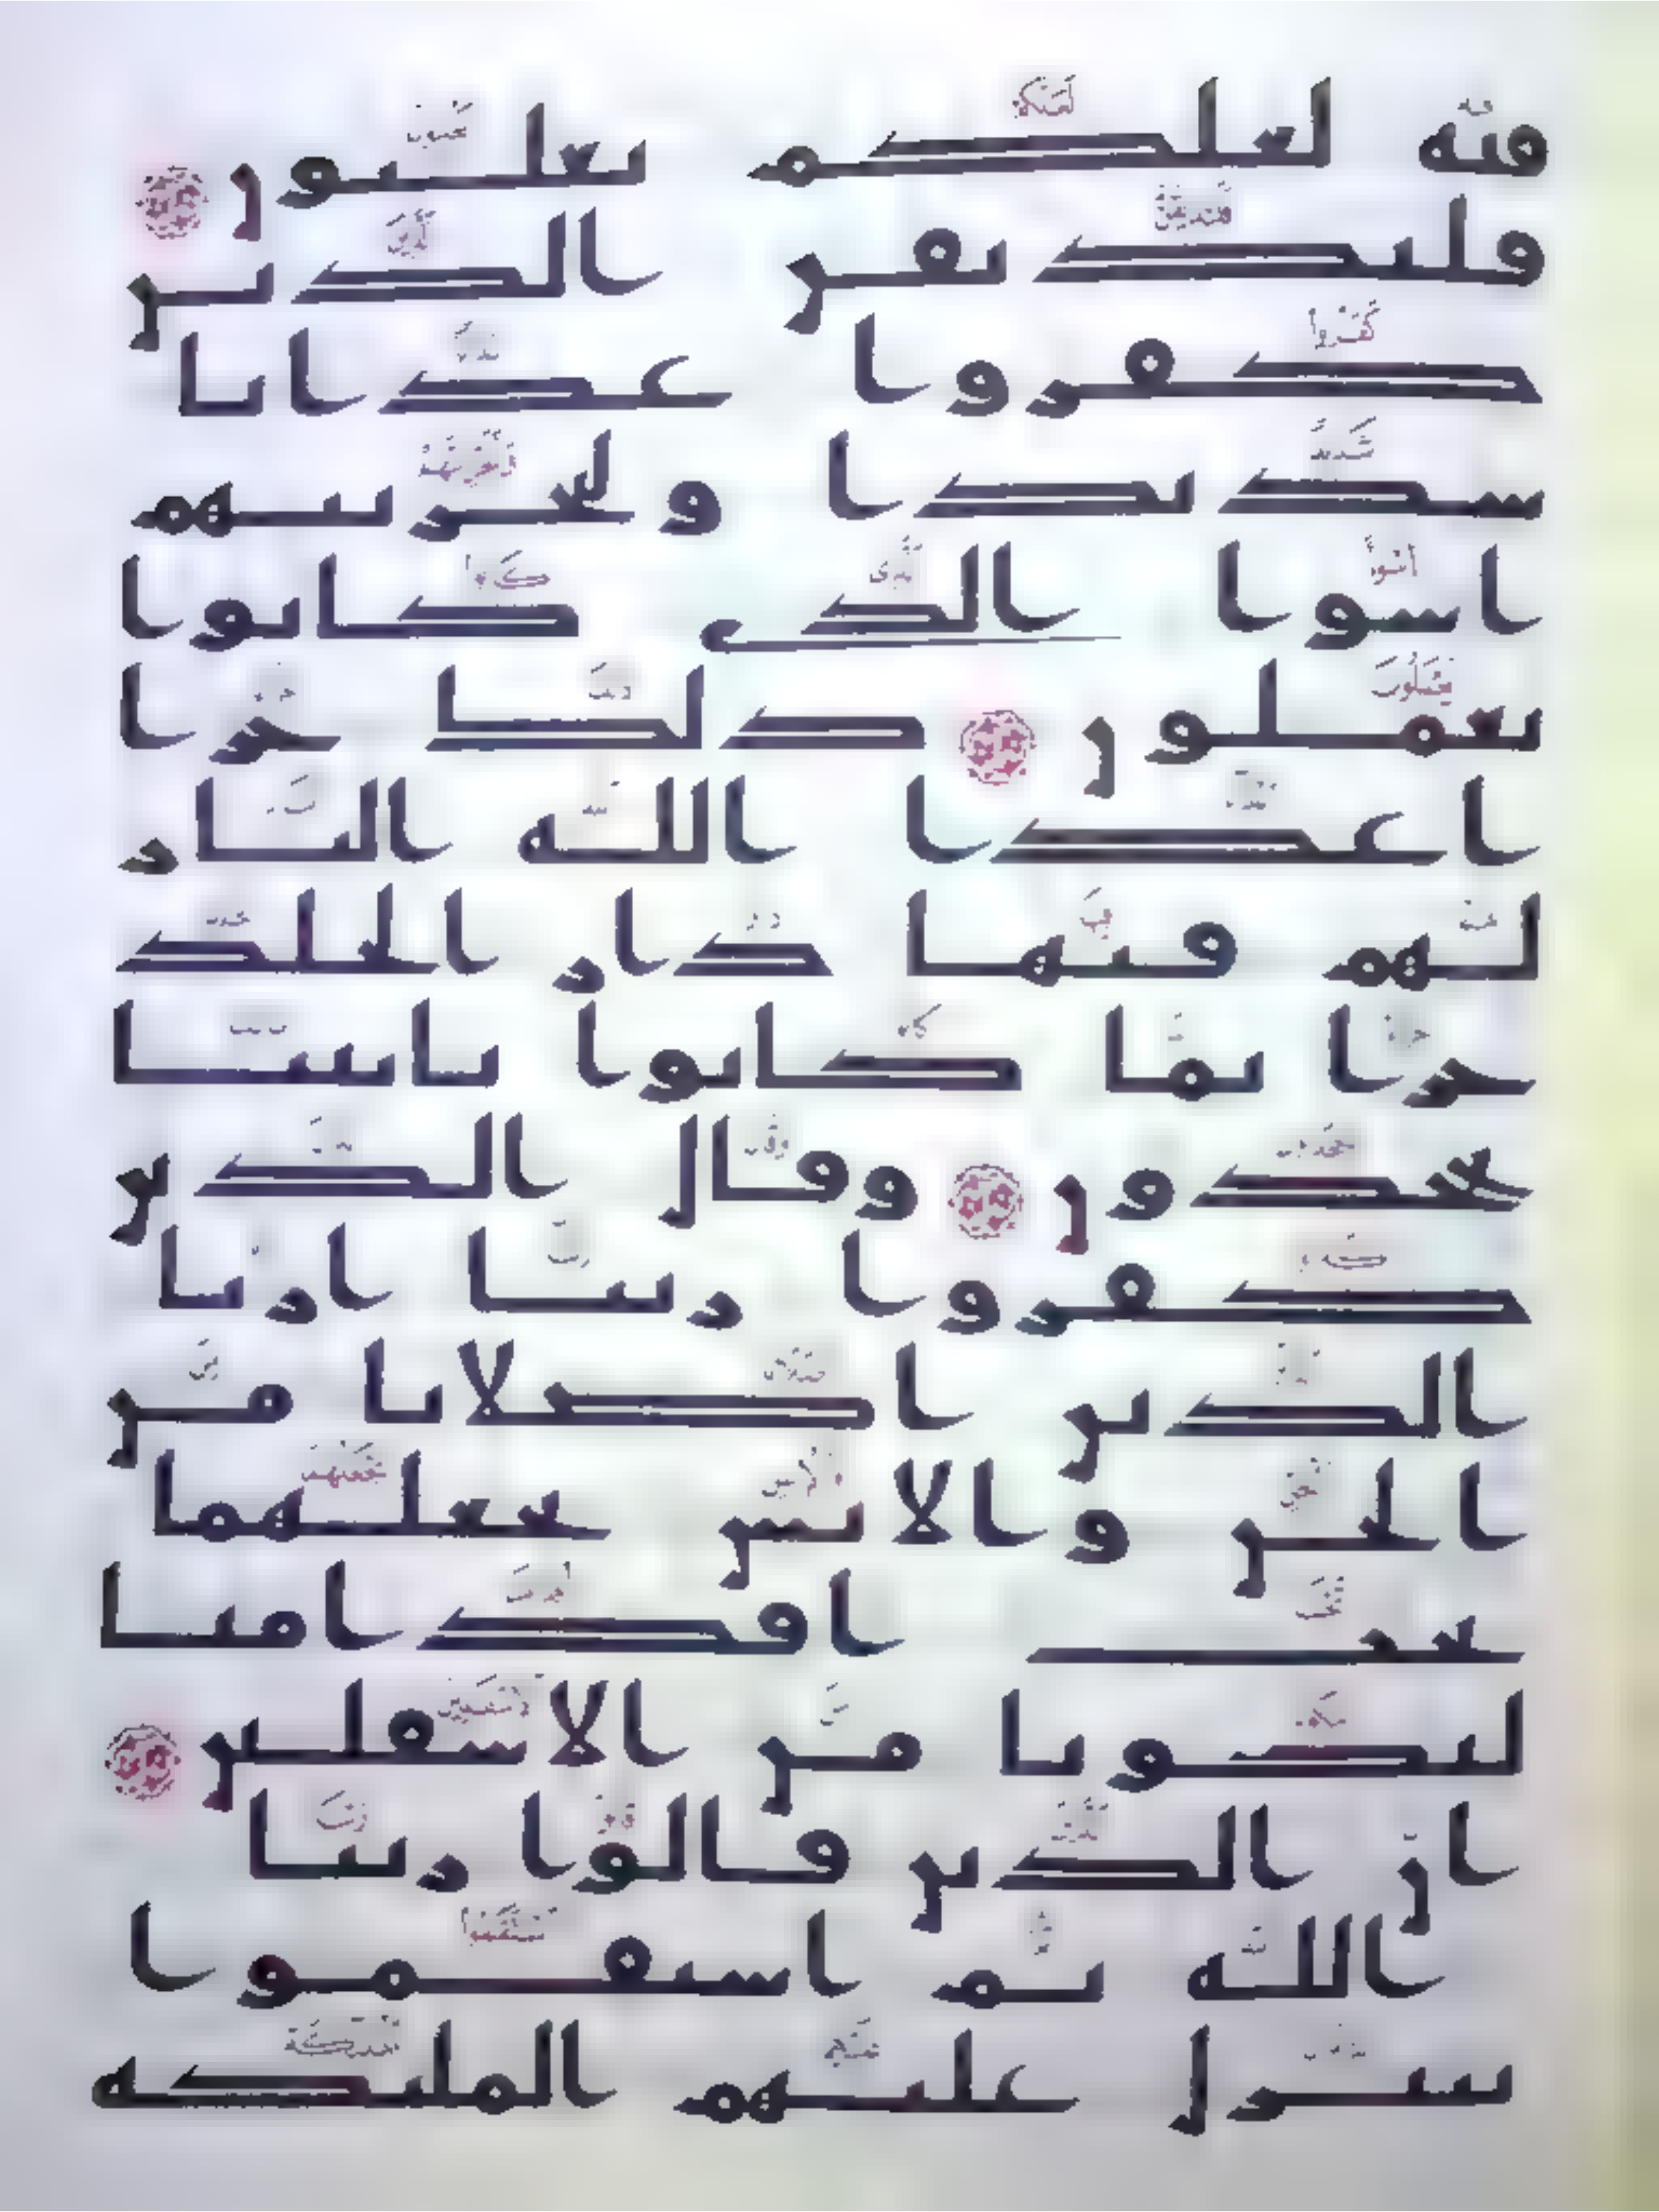 فيه لعلكم تغلبون
فلنذيقن الذين
كفروا عذابا
شديدا ولنجزينهم
اسوا الذي كانوا
يعملون ذلك جزا
اعدا الله النار
لهم فيها دار الخلد
جزا بما كانوا باييتنا
يجحدون وقال الذين
كفروا ربنا ارنا
الذين اضلانا من
الجن والانس نجعلهما
تحت اقدامنا
ليكونا من الاسفلين
ان الذين قالوا ربنا
الله ثم استقموا
تتنزل عليهم المليكه